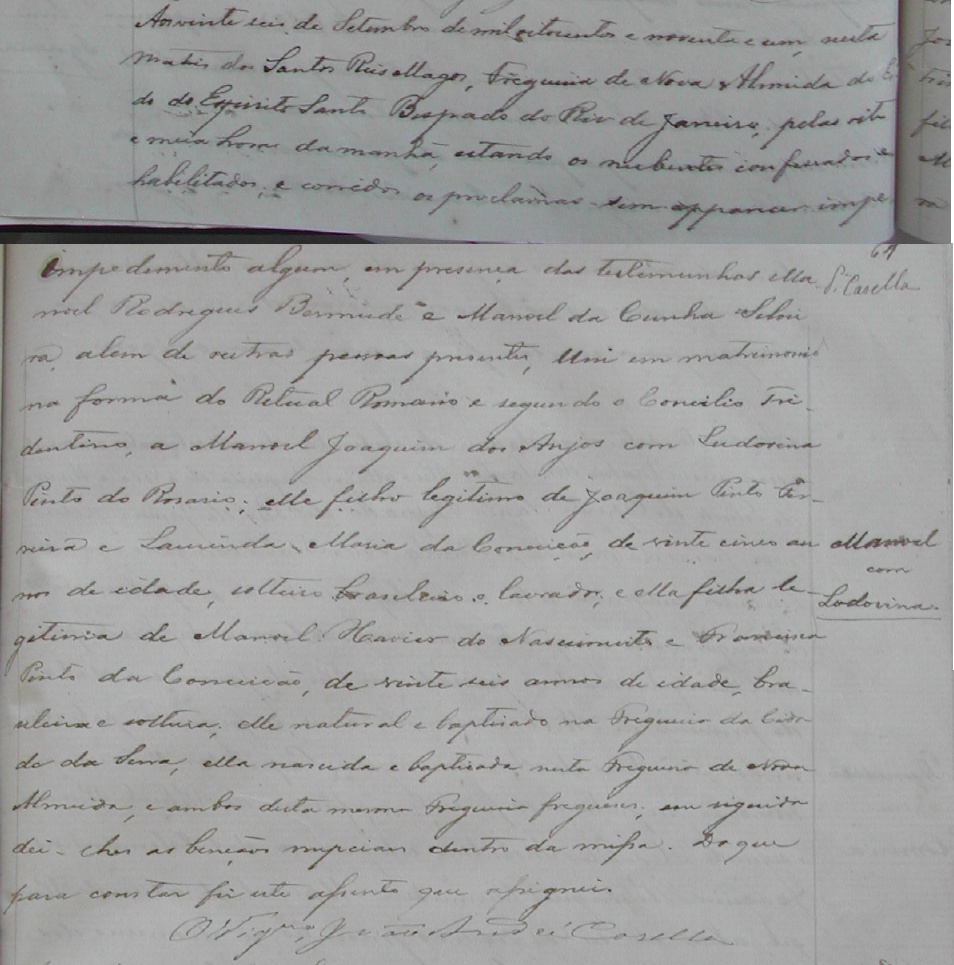 Aos vinte seis de Setembro de mil oitocentos e noventa e um, nesta
Matris dos Santos Reis Magos, Freguesia de Nova Almida do Es
do do Espirito Santo Bispado do Rio de Janeiro, pelas oito
e meia horas da manhã, estando os nubentes confessados e
habilitados, e corridos os proclamas sem apparecer impe
64
impedimento algum, em presença das testimunhas Ma
P. Casella
noel Rodrigues Bermude e Manoel da Cunha Silvei
ra, alem de outras pessoas presentes, Uni em matrimonio
na forma do Ritual Romano e segundo o Concilio Tri-
dentino, a Manoel Joaquim dos Anjos com Ludovina
Pinto do Rosario; elle filho legitimo de Joaquim Pinto Fer-
reira e Laurinda Maria da Conceição, de vinte cinco an
Manoel
com
Lodovina.
nos de idade, solteiro brasileiro e lavrador, e ella filha le-
gitima de Manoel Xavier do Nascimento e Francisca
Pinto da Conceição, de vinte seis annos de idade, bra-
sileira e solteira; elle natural e baptisado na Freguesia da Cida
de da Serra, ella nascida e baptisada nesta Freguesia de Nova
Almeida, e ambos desta mesma Freguesia freguezes; em siguida
dei-lhes as bençãos nupciais dentro da missa. Do que
para constar fiz este assento que assignei.
O Vigro João André Casella